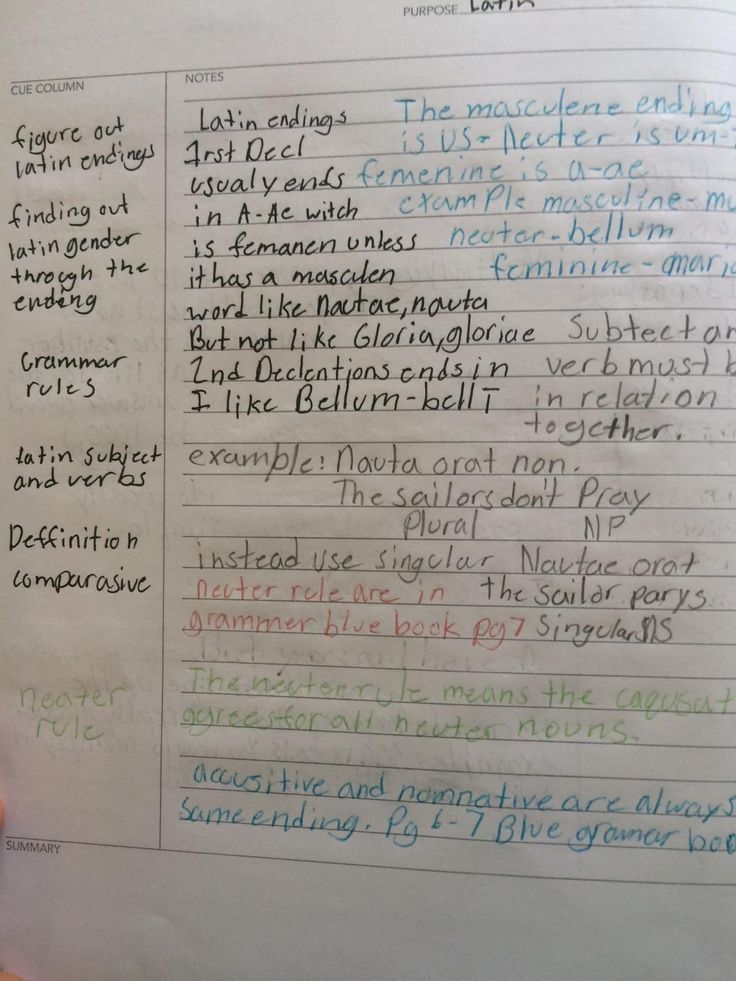 PURPOSE Latin
CUE COLUMN
figure out
latin endings
finding out
latin gender
through the
ending
Grammar
rules
latin subject
and verbs
Deffinition
comparasive
neater
rule
NOTES
Latin endings The masculene ending
1rst Decl is us- Neuter is um-
usualy ends femenine is a-ae
in A-Ae witch example masculine-mu
is femanen unless neuter-bellum
it has a masculen feminine-maria
word like Nautae, nauta
But not like Gloria, gloriae Subtect an
2nd Declentions ends in verb must b
I like Bellum-bellī in relation
together.
example: Nauta orat non.
The sailors don't Pray
Plural NP
instead use singular Nautae orat
neuter rule are in the sailor parys
grammer blue book pg 7 Singular NS
The neuter rule means the
agrees for all neuter nouns.
accusitive and nomnative are always
same ending. Pg 6-7 Blue gramar boo
SUMMARY